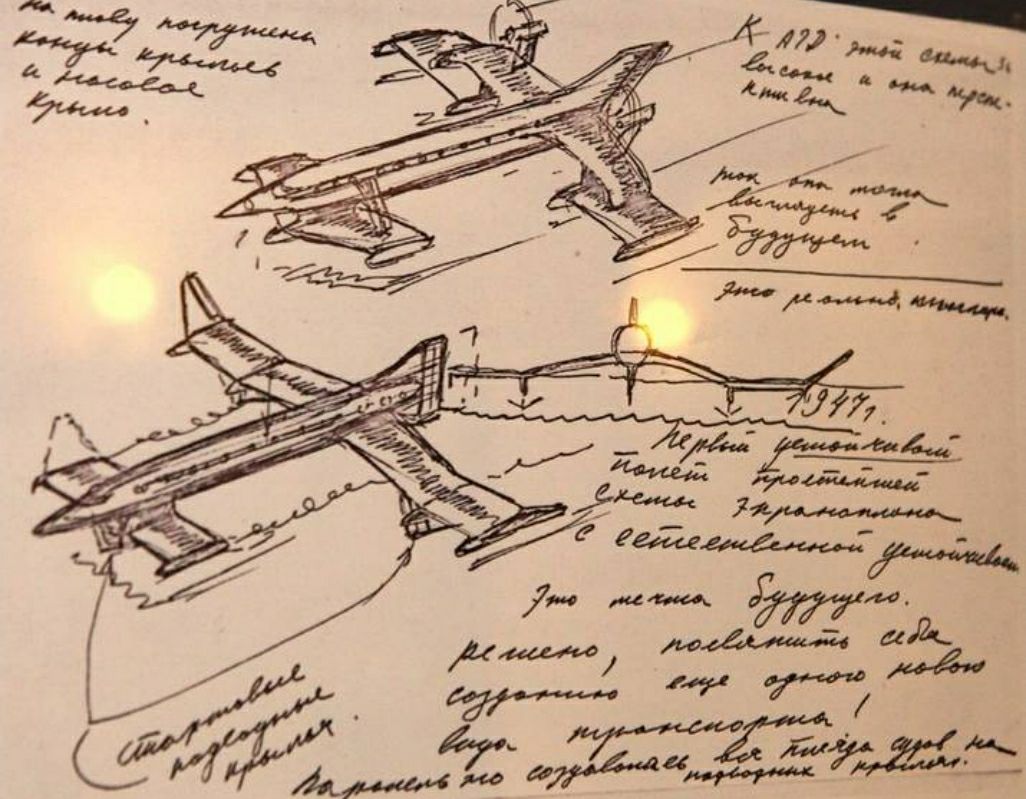 на плаву погружены
концы крыльев
и носовое
крыло.
К АГД этой схемы
высокое и она перспе-
ктивна
так она могла
выглядеть в
будущем
Это реальн.
2
1
1947г.
Первый устойчивый
полёт простейшей
схемы экраноплана
с естественной устойчивост
Это мечта будущего.
решено, посвятить себя
созданию еще одного нового
вида транспорта!
стартовые
подводные
крылья.
Параллельно создавалась вся плеяда судов на
подводных крыльях.